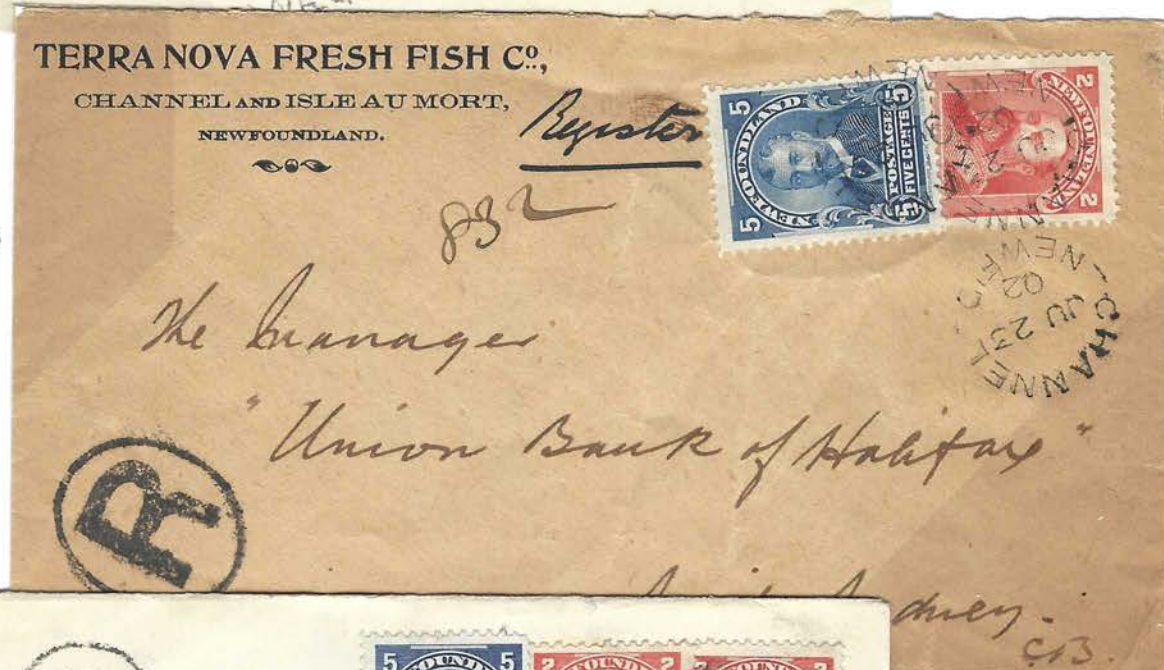 TERRA NOVA FRESH FISH Cº.,
CHANNEL AND ISLE AU MORT,
NEWFOUNDLAND.
Register
832
5 5
NEWFOUNDLAND
POSTAGE
FIVE CENTS
5 5
2
NEWFOUNDLAND
2
CHANNEL
JU 23
02
NEWF'D
The Manager
"Union Bank of Halifax"
R
Sydney.
C.B.
5 5
2